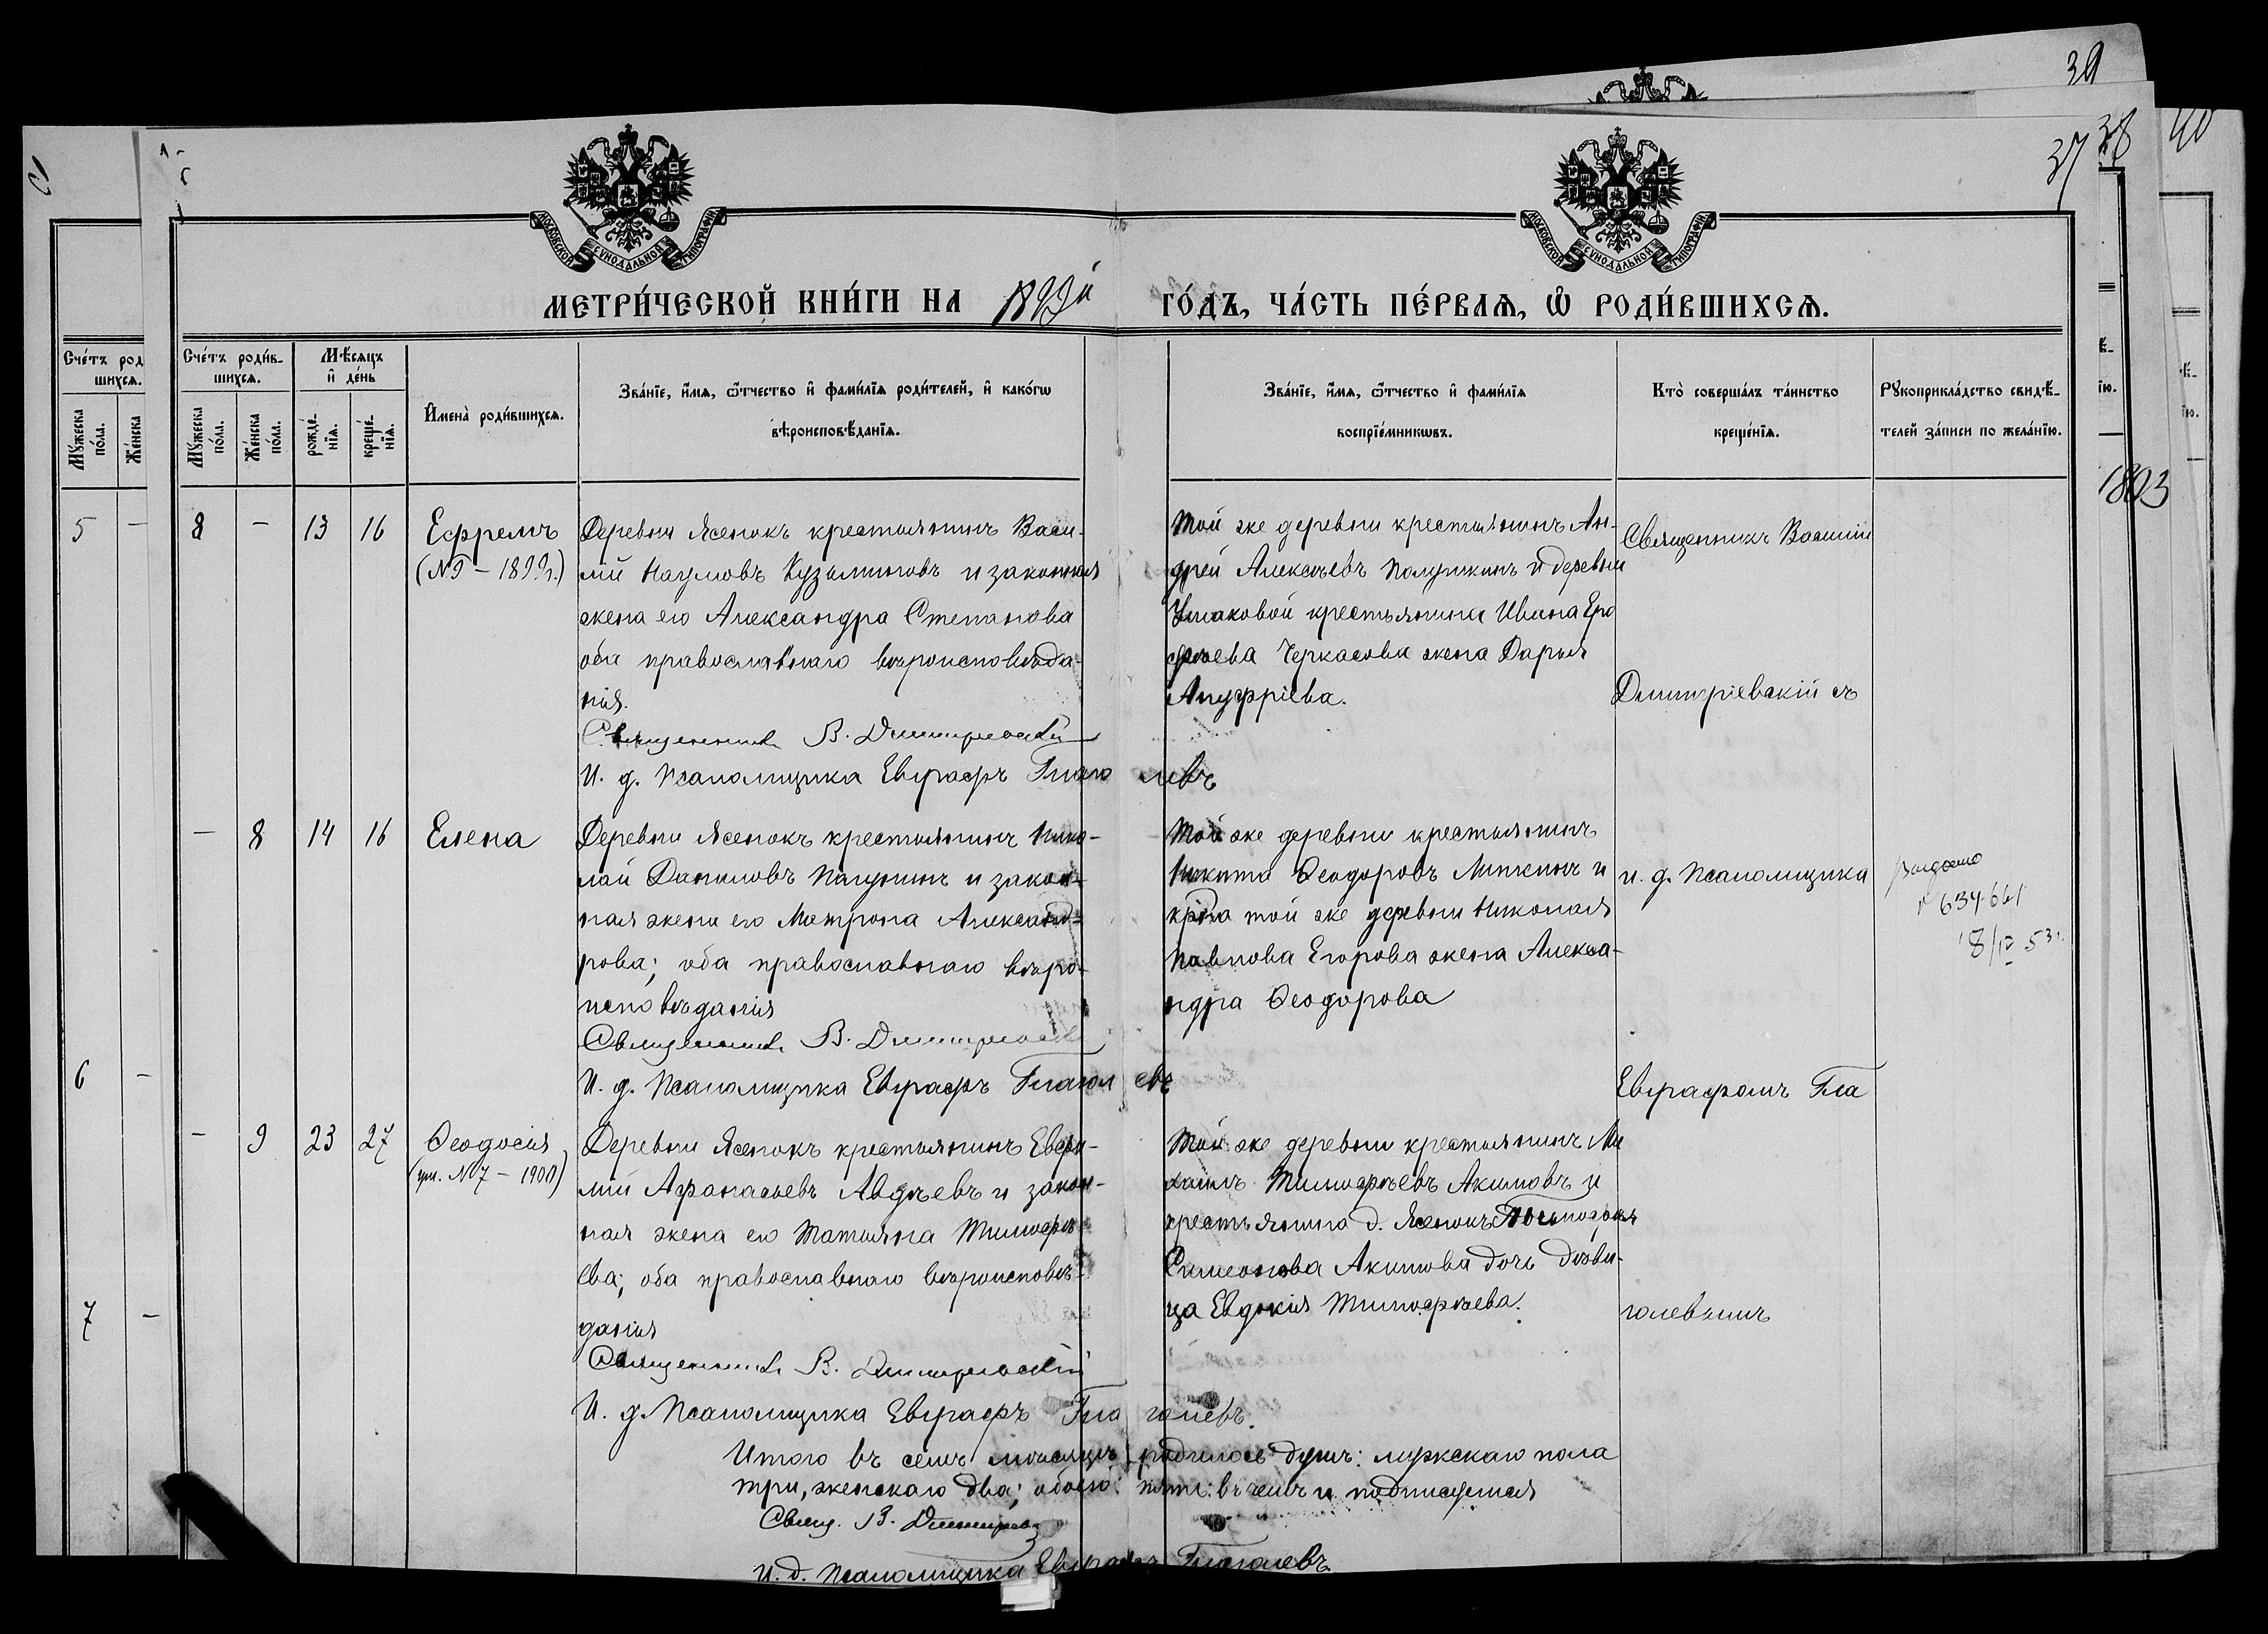 39
38
40
37
МОСКОВСКОЙ СѴНОДАЛЬНОЙ ТИПОГРАФІИ
МОСКОВСКОЙ СѴНОДАЛЬНОЙ ТИПОГРАФІИ
МЕТРИ́ЧЕСКОЙ КНИ́ГИ НА 1899й ГО́ДЪ, ЧА́СТЬ ПЕ́РВАѦ, Ѡ҆ РОДИ́ВШИХСѦ.
Сче́тъ род
шихсѧ.
Мꙋжеска по́ла.
Же́нска
Сче́тъ роди́в-
шихсѧ.
Мꙋжеска по́ла.
Же́нска по́ла.
Мѣ́сѧцъ
и҆ де́нь
рожде́-
нїѧ.
креще́-
нїѧ.
И҆мена̀ роди́вшихсѧ.
Зва́нїе, и҆́мѧ, ѻ҆́тчество и҆ фами́лїѧ роди́телей, и҆ како́гѡ
вѣроисповѣ́данїѧ.
Зва́нїе, и҆́мѧ, ѻ҆́тчество и҆ фами́лїѧ
воспрїе́мникѡвъ.
Кто̀ соверша́лъ та́инство
креще́нїѧ.
Рꙋкоприкла́дство свидѣ́-
телей за́писи по жела́нїю.
1893
5 -
8 - 13 16
Ефремъ
(№9 - 1899г.)
Деревни Ясенокъ крестьянинъ Васи-
лій Наумовъ Кузьминовъ и законная
жена его Александра Степанова
оба православнаго вѣроисповѣда-
нія.
Священникъ В. Димитріевскій
И. д. Псаломщика Евграфъ Глаголевъ
Той же деревни крестьянинъ Ан-
дрей Алексѣевъ Полушкинъ и деревни
Ушаковой крестьянина Ивана Еро
фѣева Черкасова жена Дарья
Ануфріева.
Священникъ Василій
Димитріевскій съ
- 8 14 16
Елена
Деревни Ясенокъ крестьянинъ Нико-
лай Даниловъ Папушинъ и закон-
ная жена его Матрона Александ-
рова; оба православнаго вѣро-
исповѣданія
Священникъ В. Димитріевскій
И. д. Псаломщика Евграфъ Глаголевъ
Той же деревни крестьянинъ
Никита Ѳеодоровъ Минкинъ и
той же деревни Николая
Павлова Егорова жена Алекса-
ндра Ѳеодорова
и. д. Псаломщика
634661
8/IV 53г.
6 -
Евграфомъ Гла
- 9 23 27
Ѳеодосія
(ум. №7 - 1900)
Деревни Ясенокъ крестьянинъ Евфи-
мій Афанасьевъ Авдѣевъ и закон-
ная жена его Татьяна Тимофѣ-
ева; оба православнаго вѣроисповѣ-
данія
Священникъ В. Димитріевскій
И. д. Псаломщика Евграфъ Глаголевъ.
Той же деревни крестьянинъ Ми
хаилъ Тимофѣевъ Акимовъ и
крестьянина д. Ясенокъ
Симеонова Акимова дочь дѣви-
ца Евдокія Тимофѣева.
голевымъ
7 -
Итого въ семъ мѣсяцѣ родилось душъ: мужскаго пола
три, женскаго два; обоего пять: въ чемъ и подписуемся
Свящ. В. Димитріев
И. д. Псаломщика Евграфъ Глаголевъ.